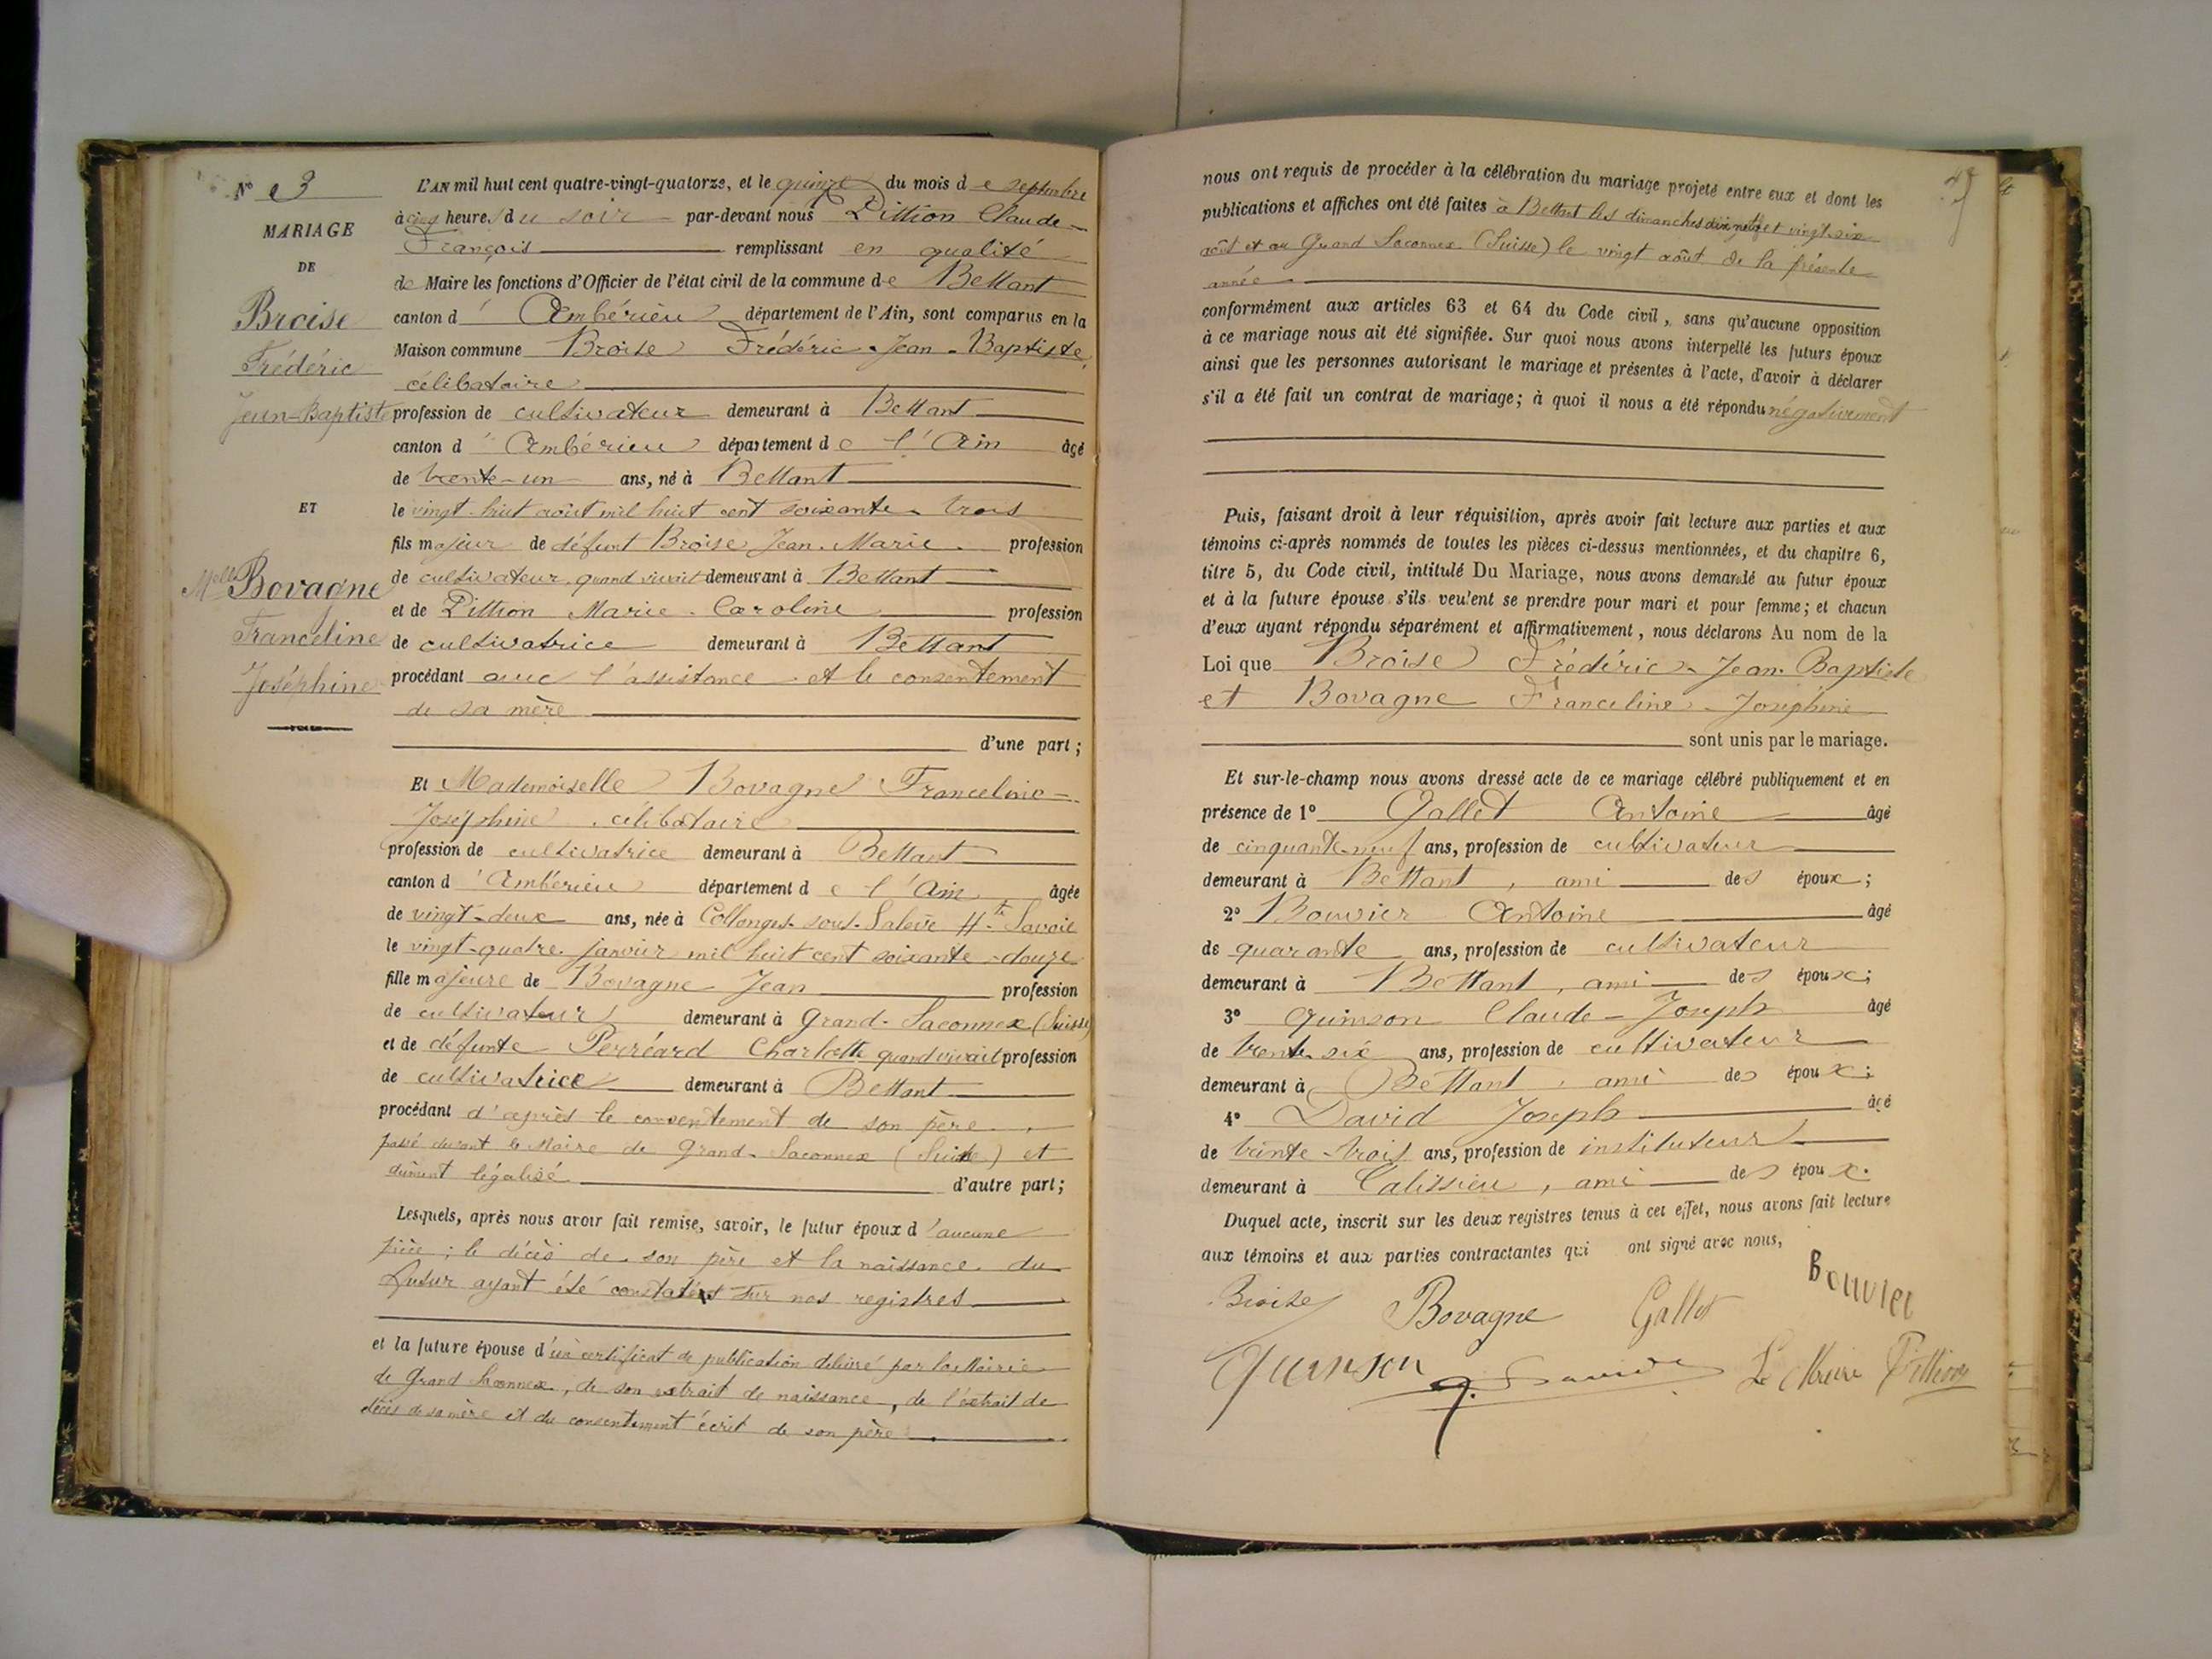 N° 3
MARIAGE
DE
Broise
Frédéric
Jean-Baptiste
ET
Melle Bovagne
Franceline
Joséphine
L'AN mil huit cent quatre-vingt-quatorze, et le quinze du mois de septembre
à cinq heures du soir par-devant nous Pittion Claude-
François remplissant en qualité
de Maire les fonctions d'Officier de l'état civil de la commune de Bettant
canton d'Ambérieu département de l'Ain, sont comparus en la
Maison commune Broise Frédéric-Jean-Baptiste,
célibataire
profession de cultivateur demeurant à Bettant
canton d'Ambérieu département de l'Ain âgé
de trente-un ans, né à Bettant
le vingt-huit août mil huit cent soixante-trois
fils majeur de défunt Broise Jean-Marie profession
de cultivateur quand vivait demeurant à Bettant
et de Pittion Marie-Caroline profession
de cultivatrice demeurant à Bettant
procédant avec l'assistance et le consentement
de sa mère
d'une part;
Et Mademoiselle Bovagne Franceline-
Joséphine, célibataire
profession de cultivatrice demeurant à Bettant
canton d'Ambérieu département de l'Ain âgée
de vingt-deux ans, née à Collonges-sous-Salève Hte Savoie
le vingt-quatre janvier mil huit cent soixante-douze
fille majeure de Bovagne Jean profession
de cultivateur demeurant à Grand-Saconnex (Suisse)
et de défunte Perréard Charlotte quand vivait profession
de cultivatrice demeurant à Bettant
procédant d'après le consentement de son père
passé devant le Maire de Grand-Saconnex (Suisse) et
dûment légalisé d'autre part;
Lesquels, après nous avoir fait remise, savoir, le futur époux d'aucune
pièce; le décès de son père et la naissance du
futur ayant été constatés sur nos registres
et la future épouse d'un certificat de publication délivré par la Mairie
de Grand Saconnex, de son extrait de naissance, de l'extrait de
décès de sa mère et du consentement écrit de son père
nous ont requis de procéder à la célébration du mariage projeté entre eux et dont les
publications et affiches ont été faites à Bettant les dimanches dix-neuf et vingt-six
août et au Grand Saconnex (Suisse) le vingt août de la présente
année
conformément aux articles 63 et 64 du Code civil, sans qu'aucune opposition
à ce mariage nous ait été signifiée. Sur quoi nous avons interpellé les futurs époux
ainsi que les personnes autorisant le mariage et présentes à l'acte, d'avoir à déclarer
s'il a été fait un contrat de mariage; à quoi il nous a été répondu négativement
Puis, faisant droit à leur réquisition, après avoir fait lecture aux parties et aux
témoins ci-après nommés de toutes les pièces ci-dessus mentionnées, et du chapitre 6,
titre 5, du Code civil, intitulé Du Mariage, nous avons demandé au futur époux
et à la future épouse s'ils veulent se prendre pour mari et pour femme; et chacun
d'eux ayant répondu séparément et affirmativement, nous déclarons Au nom de la
Loi que Broise Frédéric-Jean-Baptiste
et Bovagne Franceline-Joséphine
sont unis par le mariage.
Et sur-le-champ nous avons dressé acte de ce mariage célébré publiquement et en
présence de 1° Gallet Antoine âgé
de cinquante-neuf ans, profession de cultivateur
demeurant à Bettant, ami des époux;
2° Bouvier Antoine âgé
de quarante ans, profession de cultivateur
demeurant à Bettant, ami des époux;
3° Quinson Claude-Joseph âgé
de trente-six ans, profession de cultivateur
demeurant à Bettant, ami des époux;
4° David Joseph âgé
de trente-trois ans, profession de instituteur
demeurant à Calissieu, ami des époux.
Duquel acte, inscrit sur les deux registres tenus à cet effet, nous avons fait lecture
aux témoins et aux parties contractantes qui ont signé avec nous,
Broise Bovagne Gallet Bouvier
Quinson J. David Le Maire Pittion